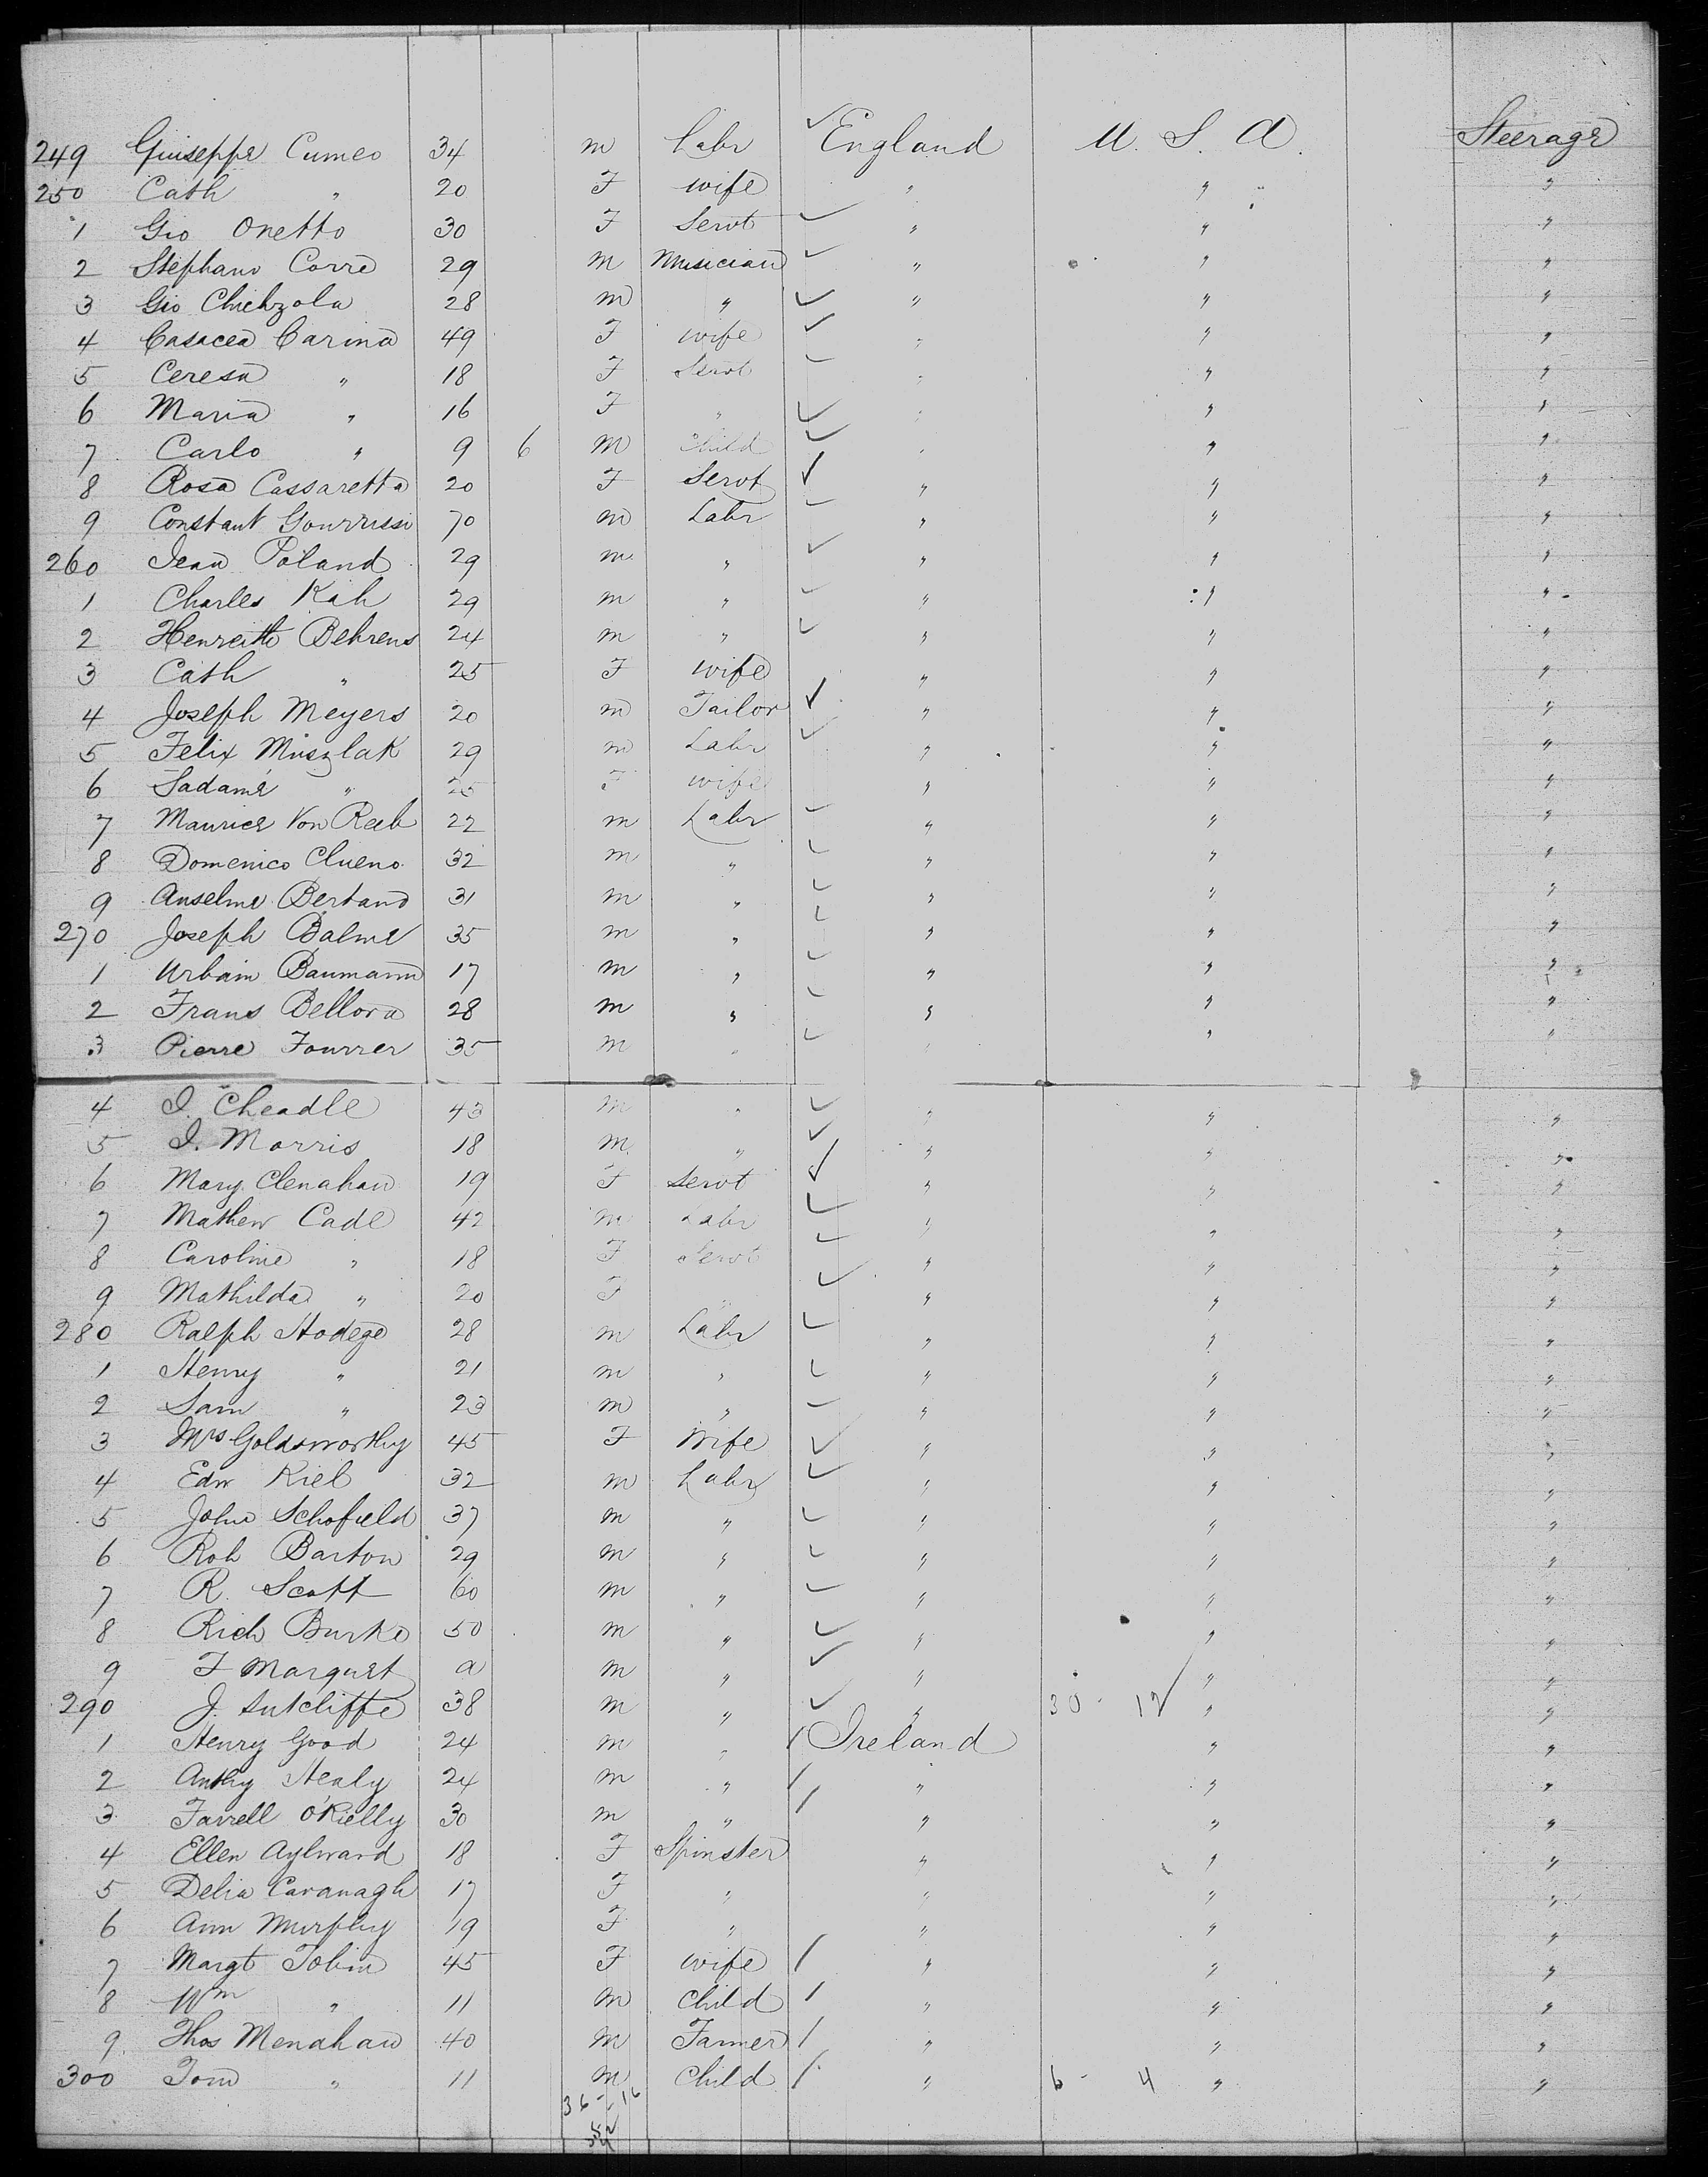 249 Giuseppe Cumeo 34 m Labr ✓ England U. S. A. Steerage
250 Cath " 20 F wife " " "
1 Gio Onetto 30 F Servt ✓ " " "
2 Stephano Corre 29 m Musician ✓ " " "
3 Gio Chichzola 28 m " ✓ " " "
4 Casacea Carina 49 F wife ✓ " " "
5 Ceresa " 18 F Servt ✓ " " "
6 Maria " 16 F " ✓ " " "
7 Carlo " 9 6 m Child ✓ " " "
8 Rosa Cassaretta 20 F Servt ✓ " " "
9 Constant Gourrissi 70 m Labr ✓ " " "
260 Jean Poland 29 m " ✓ " "
1 Charles Kah 29 m " ✓ " " "
2 Henreitte Behrens 24 m " ✓ " " "
3 Cath " 25 F wife " " "
4 Joseph Meyers 20 m Tailor ✓ " " "
5 Felix Muszlak 29 m Labr ✓ " " "
6 Sadame " 25 F wife " " "
7 Maurice Von Reeb 22 m Labr ✓ " " "
8 Domenico Clueno 32 m " ✓ " " "
9 Anselme Bertand 31 m " ✓ " " "
270 Joseph Balme 35 m " ✓ " " "
1 Urbain Baumann 17 m " ✓ " " "
2 Frans Bellora 28 m " ✓ " " "
3 Pierre Fourrer 35 m " ✓ " " "
4 I. Cheadle 43 m " ✓ " " "
5 I. Morris 18 m " ✓ " " "
6 Mary Clenahan 19 F Servt ✓ " " "
7 Mathew Cade 42 m Labr ✓ " " "
8 Caroline " 18 F Servt ✓ " " "
9 Mathilda " 20 F " ✓ " " "
280 Ralph Hodege 28 m Labr ✓ " " "
1 Henry " 21 m " ✓ " " "
2 Sam " 23 m " ✓ " " "
3 Mrs Goldsworthy 45 F Wife ✓ " " "
4 Edw Kiel 32 m Labr ✓ " " "
5 John Schofield 37 m " ✓ " " "
6 Rob Barton 29 m " ✓ " " "
7 R. Scott 60 m " ✓ " " "
8 Rich Burke 50 m " ✓ " " "
9 F Marquet a m " ✓ " " "
290 J. Sutcliffe 38 m " ✓ " 30 - 12 " "
1 Henry Good 24 m " / Ireland " "
2 Anthy Healy 24 m " / " " "
3 Farrell O'Rielly 30 m " / " " "
4 Ellen Aylward 18 F Spinster " " "
5 Delia Cavanagh 17 F " " " "
6 Ann Murphy 19 F " " " "
7 Margt Tobin 45 F wife / " " "
8 Wm " 11 m Child / " " "
9 Thos Menahan 40 m Farmer / " " "
300 Tom " 11 m Child / " 6 - 4 " "
36 - 16